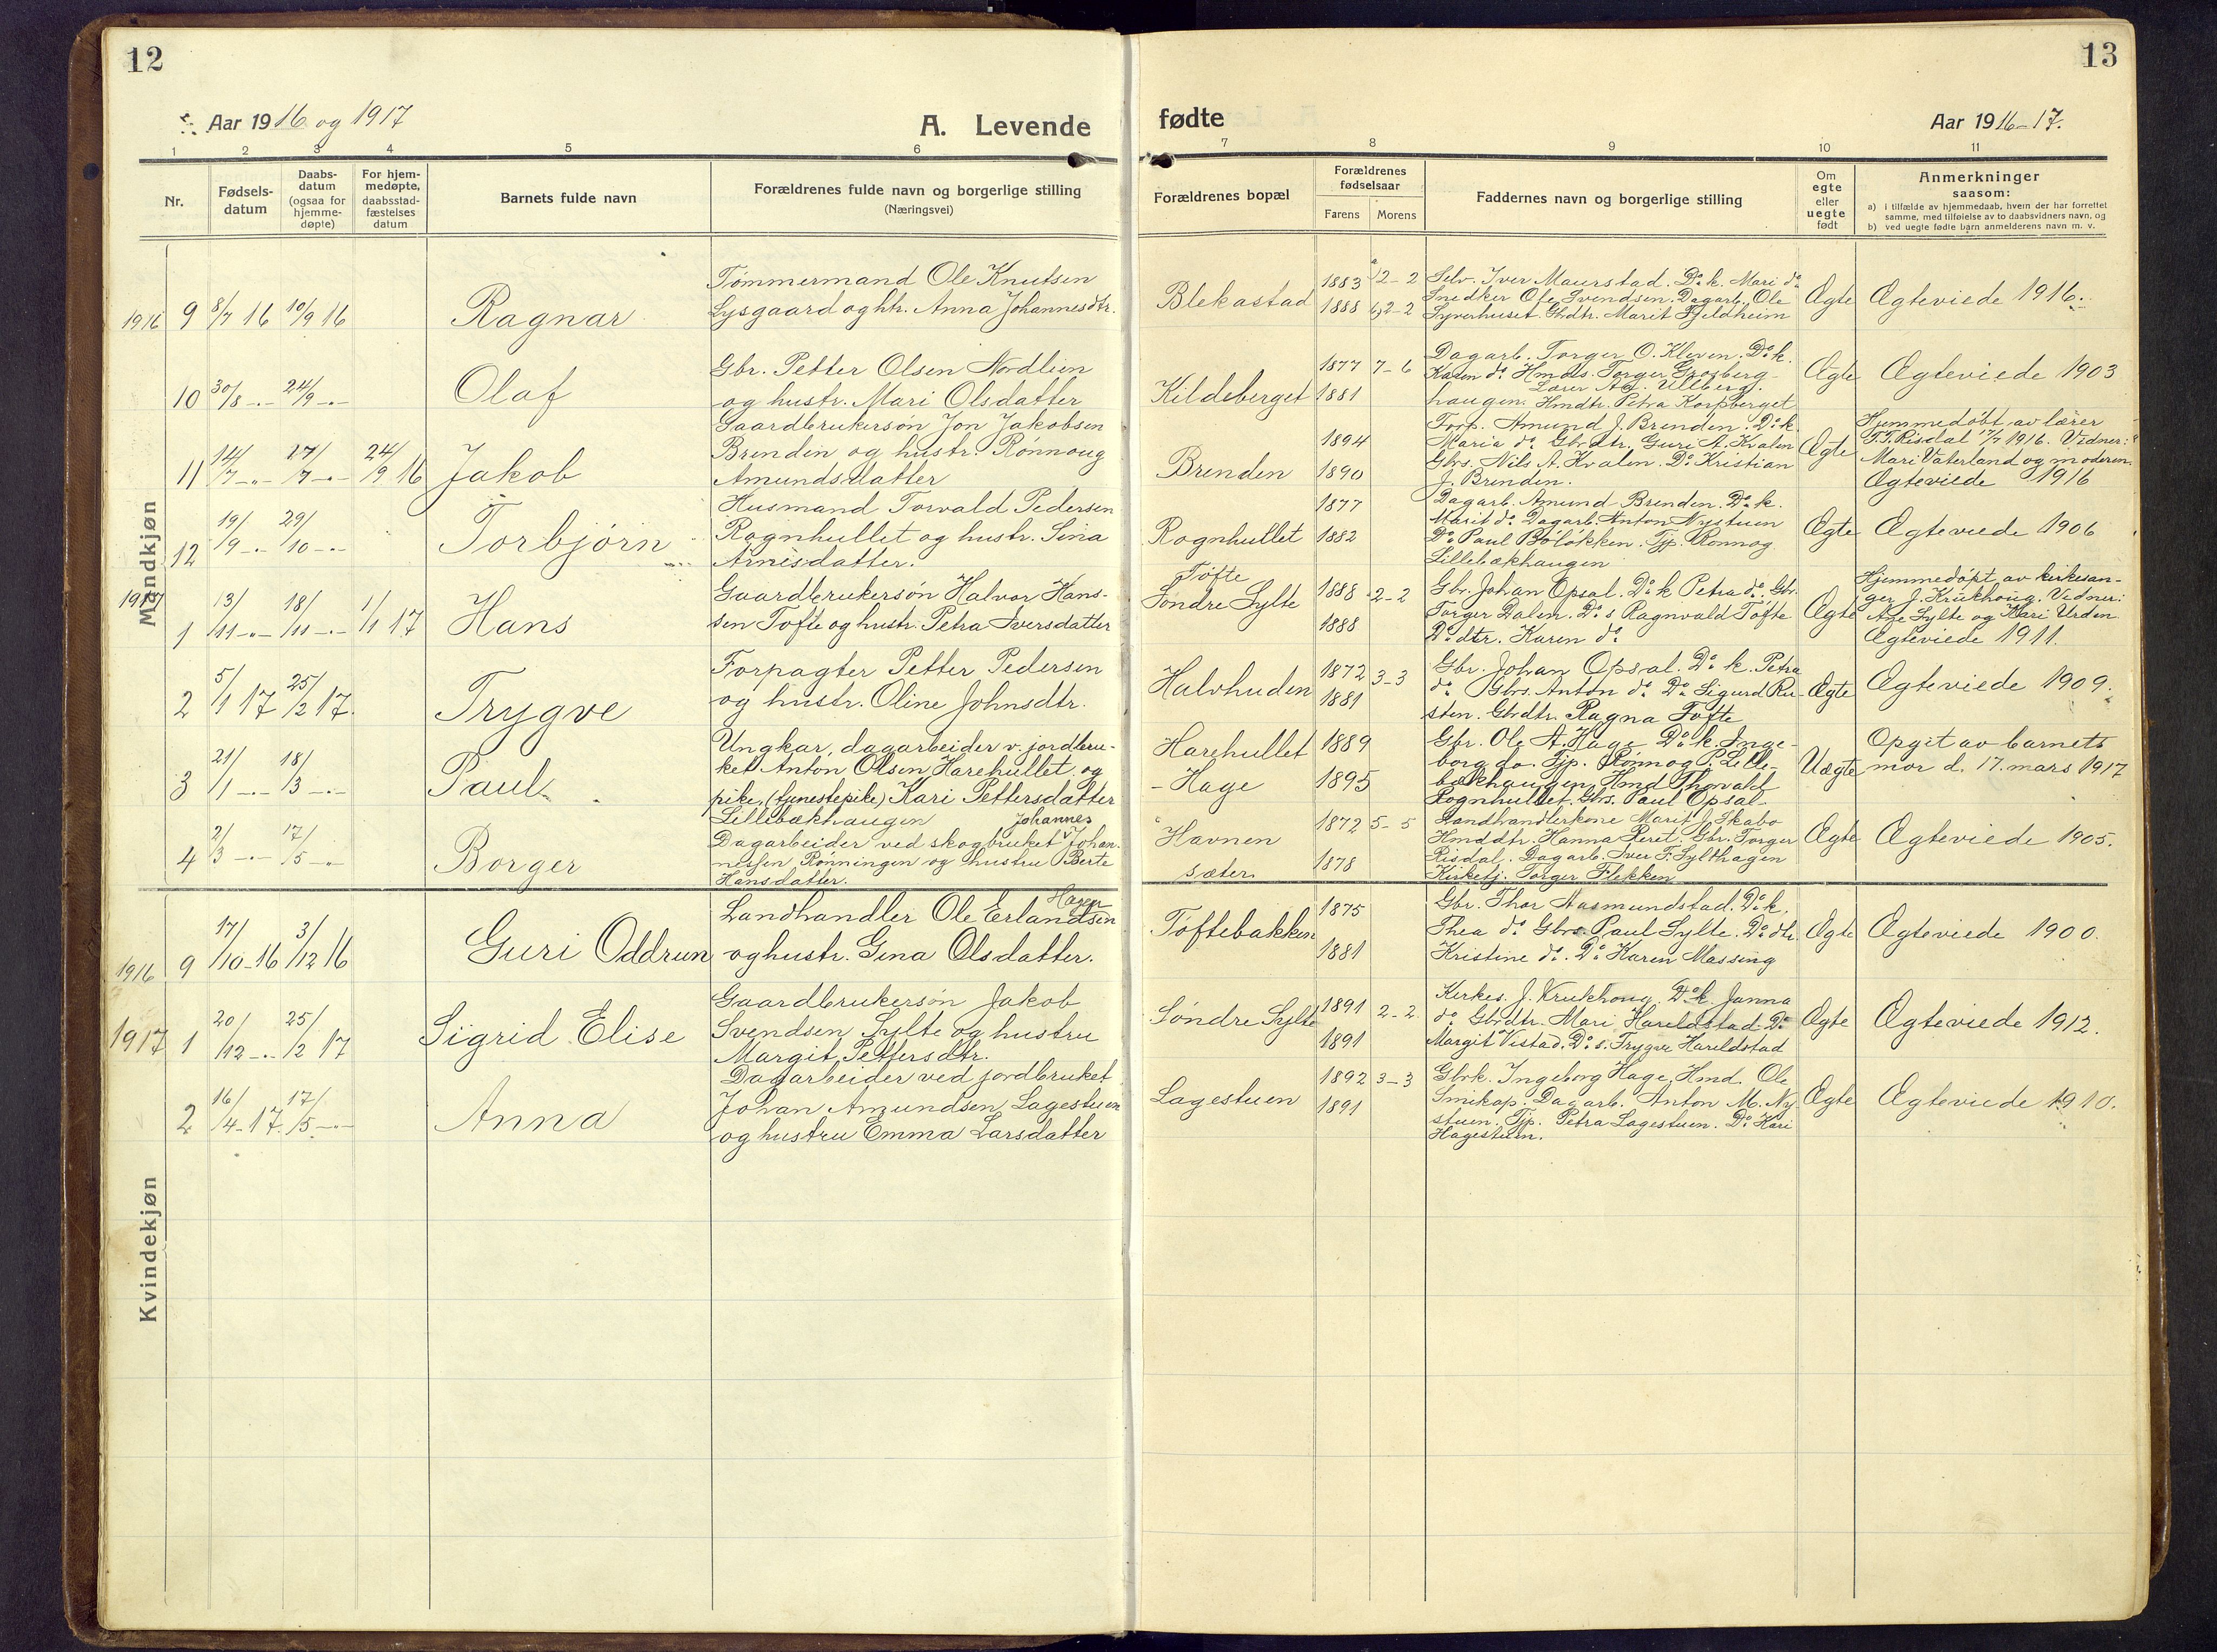 12
Aar 1916 og 1917
A. Levende
1 2 3 4 5 6
Nr.
Fødsels-
datum
Daabs-
datum
(ogsaa for
hjemme-
døpte)
For hjem-
medøpte,
daabsstad-
fæstelses
datum
Barnets fulde navn
Forældrenes fulde navn og borgerlige stilling
(Næringsvei)
Mandkjøn
1916 9 8/7 16 10/9 16 Ragnar
Tømmermand Ole Knutsen
Lysgaard og htr. Anna Johannesdtr.
10 30/8 -„- 24/9 -„- Olaf
Gbr. Petter Olsen Nordlien
og hustr. Mari Olsdatter
11 14/7 -„- 27/7 -„- 24/9 16 Jakob
Gaardbrukersøn Jon Jakobsen
Brenden og hustr. Rønnoug
Amundsdatter
12 19/9 -„- 29/10 -„- Torbjørn
Husmand Torvald Pedersen
Rognhullet og hustr. Sina
Arnesdatter.
1917 1 13/11 -„- 18/11 -„- 1/1 17 Hans
Gaardbrukersøn Halvor Hans-
sen Tofte og hustr. Petra Iversdatter
2 5/1 17 25/2 17. Trygve
Forpagter Petter Pedersen
og hustr. Oline Johnsdtr.
3 21/1 -„- 18/3 -„- Paul
Ungkar, dagarbeider v. jordbru-
ket Anton Olsen Harehullet og
pike, (tjenestepike) Kari Pettersdatter
Lillebækhaugen
4 2/3 -„- 17/5 -„- Borger
Johannes
Dagarbeider ved skogbruket Johan-
nessen Rønningen og hustru Berte
Hansdatter.
Kvindekjøn
1916 9 17/10 -16 3/12 16 Guri Oddrun
Hagen
Landhandler Ole Erlandsen
og hustr. Gina Olsdatter.
1917 1 20/12 -„- 25/2 17 Sigrid Elise
Gaardbrukersøn Jakob
Svendsen Sylte og hustru
Margit Pettersdtr.
2 16/4 -17. 17/5 -„- Anna
Dagarbeider ved jordbruket
Johan Amundsen Lagestuen
og hustru Emma Larsdatter
13
fødte
Aar 1916-17.
7 8 9 10 11
Forældrenes bopæl
Forældrenes
fødselsaar
Farens Morens
Faddernes navn og borgerlige stilling
Om
egte
eller
uegte
født
Anmerkninger
saasom:
a) i tilfælde av hjemmedaab, hvem der har forrettet
samme, med tilføielse av to daabsvidners navn, og
b) ved uegte fødte barn anmelderens navn m. v.
Blekastad
1883 a) 2-2
1888 b) 2-2
Selv. Iver Maurstad. Do k. Mari do
Snedker Ole Svendsen. Dagarb. Ole
Gbrdtr. Marit Fjeldheim
Ægte
Ægteviede 1916.
Kildeberget
1877 7-6
1881
Dagarb. Torger O. Kleven. Do k.
Karen do Hmds. Torger Grosberg-
Lærer Ag. Ulberg.
haugen. Hmdtr. Petra Korpberget
Ægte
Ægteviede 1903
Brenden
1894
1890
Forp. Amund J. Brenden. Do k.
Maria do Gbrdtr. Guri A. Kvalen
Gbrs. Nils A. Kvalen. Do Kristian
J. Brenden.
Ægte
Hjemmedøbt av lærer
T.T. Risdal 17/7 1916. Vidner:
Mari Vaterland og moderen.
Ægteviede 1916
Rognhullet
1877
1882
Dagarb. Amund Brenden. Do k.
Marit do Dagarb. Anton Nystuen
Do Paul Boløkken. Tjp. Rønnog
Lillebækhaugen
Ægte
Ægteviede 1906
Tofte
Søndre Sylte
1888 2-2
1888
Gbr. Johan Opsal. Do k Petra do. Gbr.
Torger Dalen. Do s Ragnvald Tofte
Do dtr. Karen do
Ægte
Hjemmedøpt av kirkesan-
ger J. Krukhoug. Vidner:
Aze Sylte og Kari Urden
Ægteviede 1911.
Halvhuden
1872 3-3
1881
Gbr. Johan Opsal. Do k. Petra
do Gbrs. Anton do Do Sigurd Ru-
sten. Gbrdtr. Ragna Tofte
Ægte
Ægteviede 1909.
Harehullet
- Hage
1889
1895
Gbr. Ole A. Hage Do k. Inge-
borg do. Tjp. Rønnog P. Lille-
bækhaugen. Hmd Thorvald
Rognhullet. Gbrs. Paul Opsal
Uægte
Opgit av barnets
mor d. 17. mars 1917
Havnen
sæter.
1872 5-5
1878
Landhandlerkone Marit J. Skabo
Hmddtr. Hanna Peret. Gbr. Torger
Risdal. Dagarb. Iver F. Sylthagen
Kirketj. Torger Flekken
Ægte
Ægteviede 1905.
Toftebakken
1875
1881
Gbr. Thor Aasmundstad. Do k.
Thea do Gbrs. Paul Sylte. Do dtr.
Kristine do. Do Karen Massing
Ægte
Ægteviede 1900.
Søndre Sylte
1891 2-2.
1891
Kirkes. J. Krukhoug. Do k. Janna
do Gbrdtr. Mari Hareldstad. Do
Margit Vistad. Do s. Trygve Hareldstad
Ægte
Ægteviede 1912.
Lagestuen
1892 3-3
1891
Gbrk. Ingeborg Hage. Hmd. Ole
Smikop. Dagarb. Anton M. Ny-
stuen. Tjp. Petra Lagestuen. Do Kari
Hagestuen.
Ægte
Ægteviede 1910.